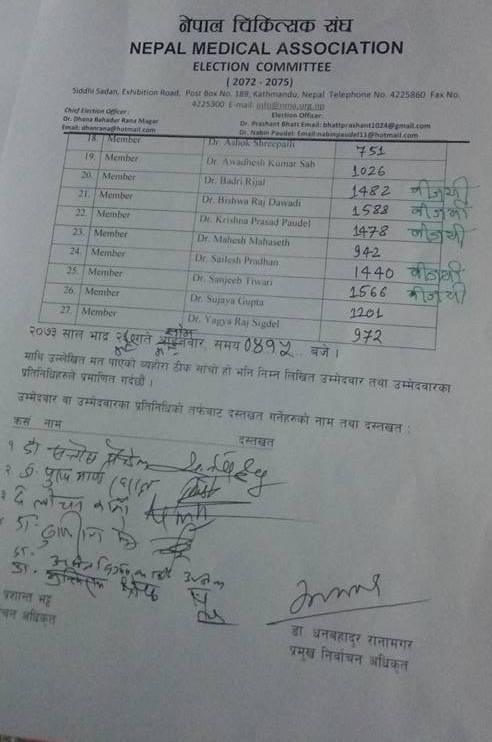 नेपाल चिकित्सक संघ
NEPAL MEDICAL ASSOCIATION
ELECTION COMMITTEE
( 2072 - 2075)
Siddhi Sadan, Exhibition Road, Post Box No. 189, Kathmandu, Nepal Telephone No. 4225860 Fax No.
4225300 E-mail: info@nma.org.np
Chief Election Officer:
Dr. Dhana Bahadur Rana Magar
Email: dhanrana@hotmail.com
Election Officer:
Dr. Prashant Bhatt Email: bhattprashant1024@gmail.com
Dr. Nabin Paudel: Email:nabinpaudel11@hotmail.com
18. Member Dr. Ashok Shreepaili 751
19. Member Dr. Awadhesh Kumar Sah 1026
20. Member Dr. Badri Rijal 1482 बीजयी
21. Member Dr. Bishwa Raj Dawadi 1588 बीजयी
22. Member Dr. Krishna Prasad Paudel 1478 बीजयी
23. Member Dr. Mahesh Mahaseth 942
24. Member Dr. Sailesh Pradhan 1440 बीजयी
25. Member Dr. Sanjeeb Tiwari 1566 बीजयी
26. Member Dr. Sujaya Gupta 1201
27. Member Dr. Yagya Raj Sigdel 972
२०७३ साल भाद्र गते समय बजे ।
माथि उल्लेखित मत पाएको व्यहोरा ठीक साँचो हो भनि निम्न लिखित उम्मेदवार तथा उम्मेदवारका
प्रतिनिधिहरुले प्रमाणित गर्दछौं ।
उम्मेदवार वा उम्मेदवारका प्रतिनिधिको तर्फबाट दस्तखत गर्नेहरुको नाम तथा दस्तखत :
क्रसं नाम दस्तखत
प्रशान्त भट्ट
डा धनबहादुर रानामगर
प्रमुख निर्वाचन अधिकृत